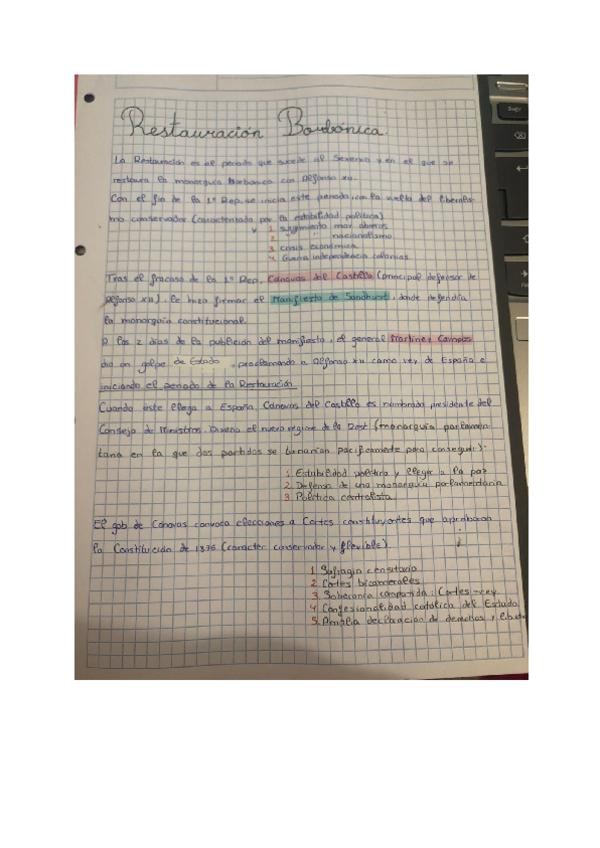 Restauración Borbónica
La Restauración es el periodo que sucede al Sexenio y en el que se
restaura la monarquía Borbónica con Alfonso XII.
Con el fin de la 1ª Rep. se inicia este periodo, con la vuelta del libera
mo conservador (caracterizado por la estabilidad política)
y 1. Surgimiento mov. obreros
2. " " nacionalismo
3. crisis económica
4. Guerra independencia colonias
Tras el fracaso de la 1ª Rep, Cánovas del Castillo (principal defensor de
Alfonso XII), le hizo firmar el Manifiesto de Sandhurst, donde defendía
la monarquía constitucional.
A los 2 días de la publición del manifiesto, el general Martínez Campos
dio un golpe de Estado, proclamando a Alfonso XII como rey de España e
iniciando el periodo de la Restauración
Cuando este llega a España, Cánovas del Castillo es nombrado presidente del
Consejo de Ministros. Diseña el nuevo régimen de la Rest (monarquía parlamen
taria en la que dos partidos se turnarían pacíficamente para conseguir):
1. Estabilidad política y llegar a la paz
2. Defensa de una monarquía parlamentaria
3. Política centralista
El gob de Cánovas convoca elecciones a Cortes constituyentes que aprobaron
la Constitución de 1876 (carácter conservador y flexible).
1. Sufragio censitario
2. Cortes bicamerales
3. Soberanía compartida: Cortes-rey
4. Confesionalidad católica del Estado
5. Amplia declaración de derechos y